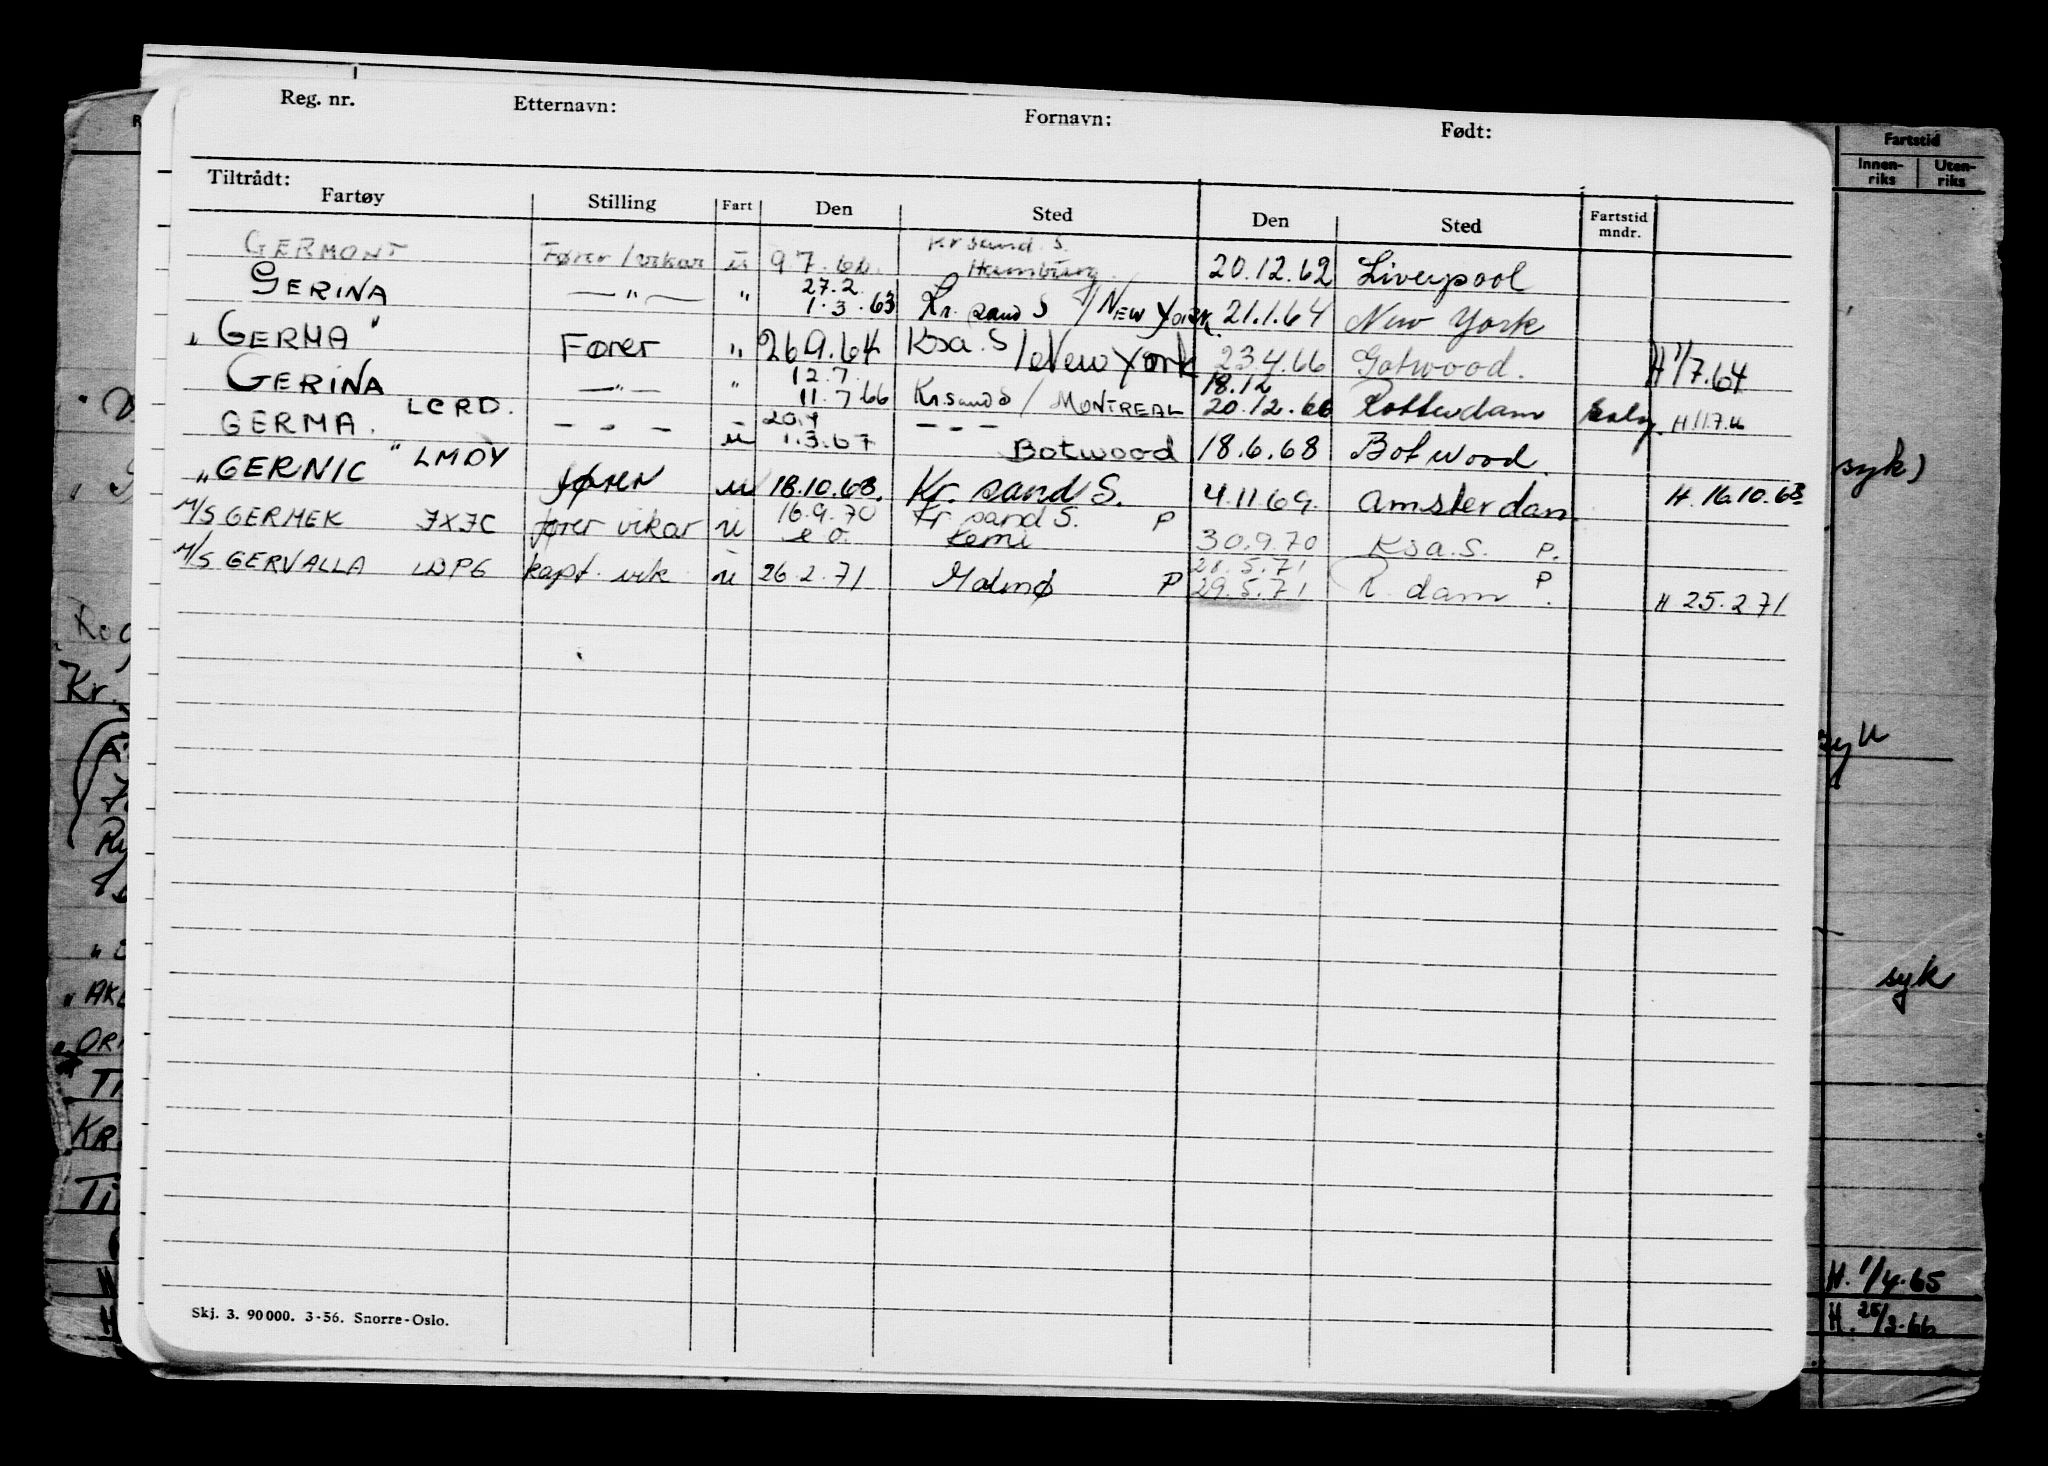 Reg. nr. Etternavn: Fornavn: Født:
Tiltrådt:
Fartøy Stilling Fart Den Sted Den Sted Fartstid mndr.
GERMONT Fører / vikar u 9 7. 60. Kr sand. S. Hamburg. 20.12.62 Liverpool
GERINA — " — " 27.2 1.3.63 Kr. sand S / NEW YORK 21.1.64 New York
" GERMA " Fører " 26 9.64 Ksa. S / New York 23.4.66 Botwood. H 1/7.64
GERINA LCRD. — " — " 12.7 11.7 66 Kr.sand S / MONTREAL 18.12 20.12.66 Rotterdam H 11.7.66
GERMA. LMDY - - - u 20.4 1.3.67 - - - Botwood 18.6.68 Botwood.
" GERNIC " fører u 18.10.68. Kr. sand S. 4.11 69. Amsterdam H. 16.10.68
M/S GERMEK JXJC fører vikar u 16.9.70 Kr sand S. P Kemi 30.9.70 Ksa. S. P.
M/S GERVALLA LDPG kapt. vik u 26.2.71 Malmø P 21.5.71 29.5.71 R. dam P. H 25.2 71
Skj. 3. 90000. 3-56. Snorre-Oslo.
Fartstid
Innenriks Utenriks
syk)
syk
syk
H. 1/4.65
H. 25/3-66
Kr.